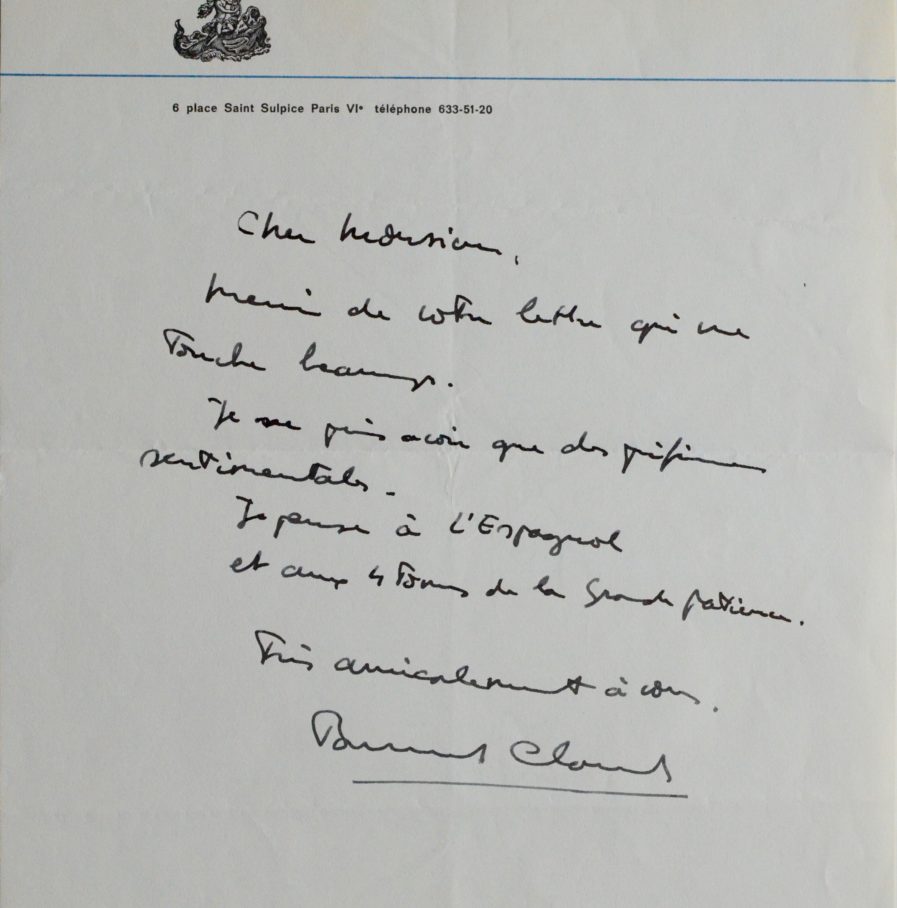 6 place Saint Sulpice Paris VIe téléphone 633-51-20
Cher Monsieur,
merci de votre lettre qui me
Touche beaucoup.
Je ne puis avoir que des préférences
sentimentales.
Je pense à L'Espagnol
et aux 4 Tomes de la Grande patience.
Très amicalement à vous.
Bernard Clavel